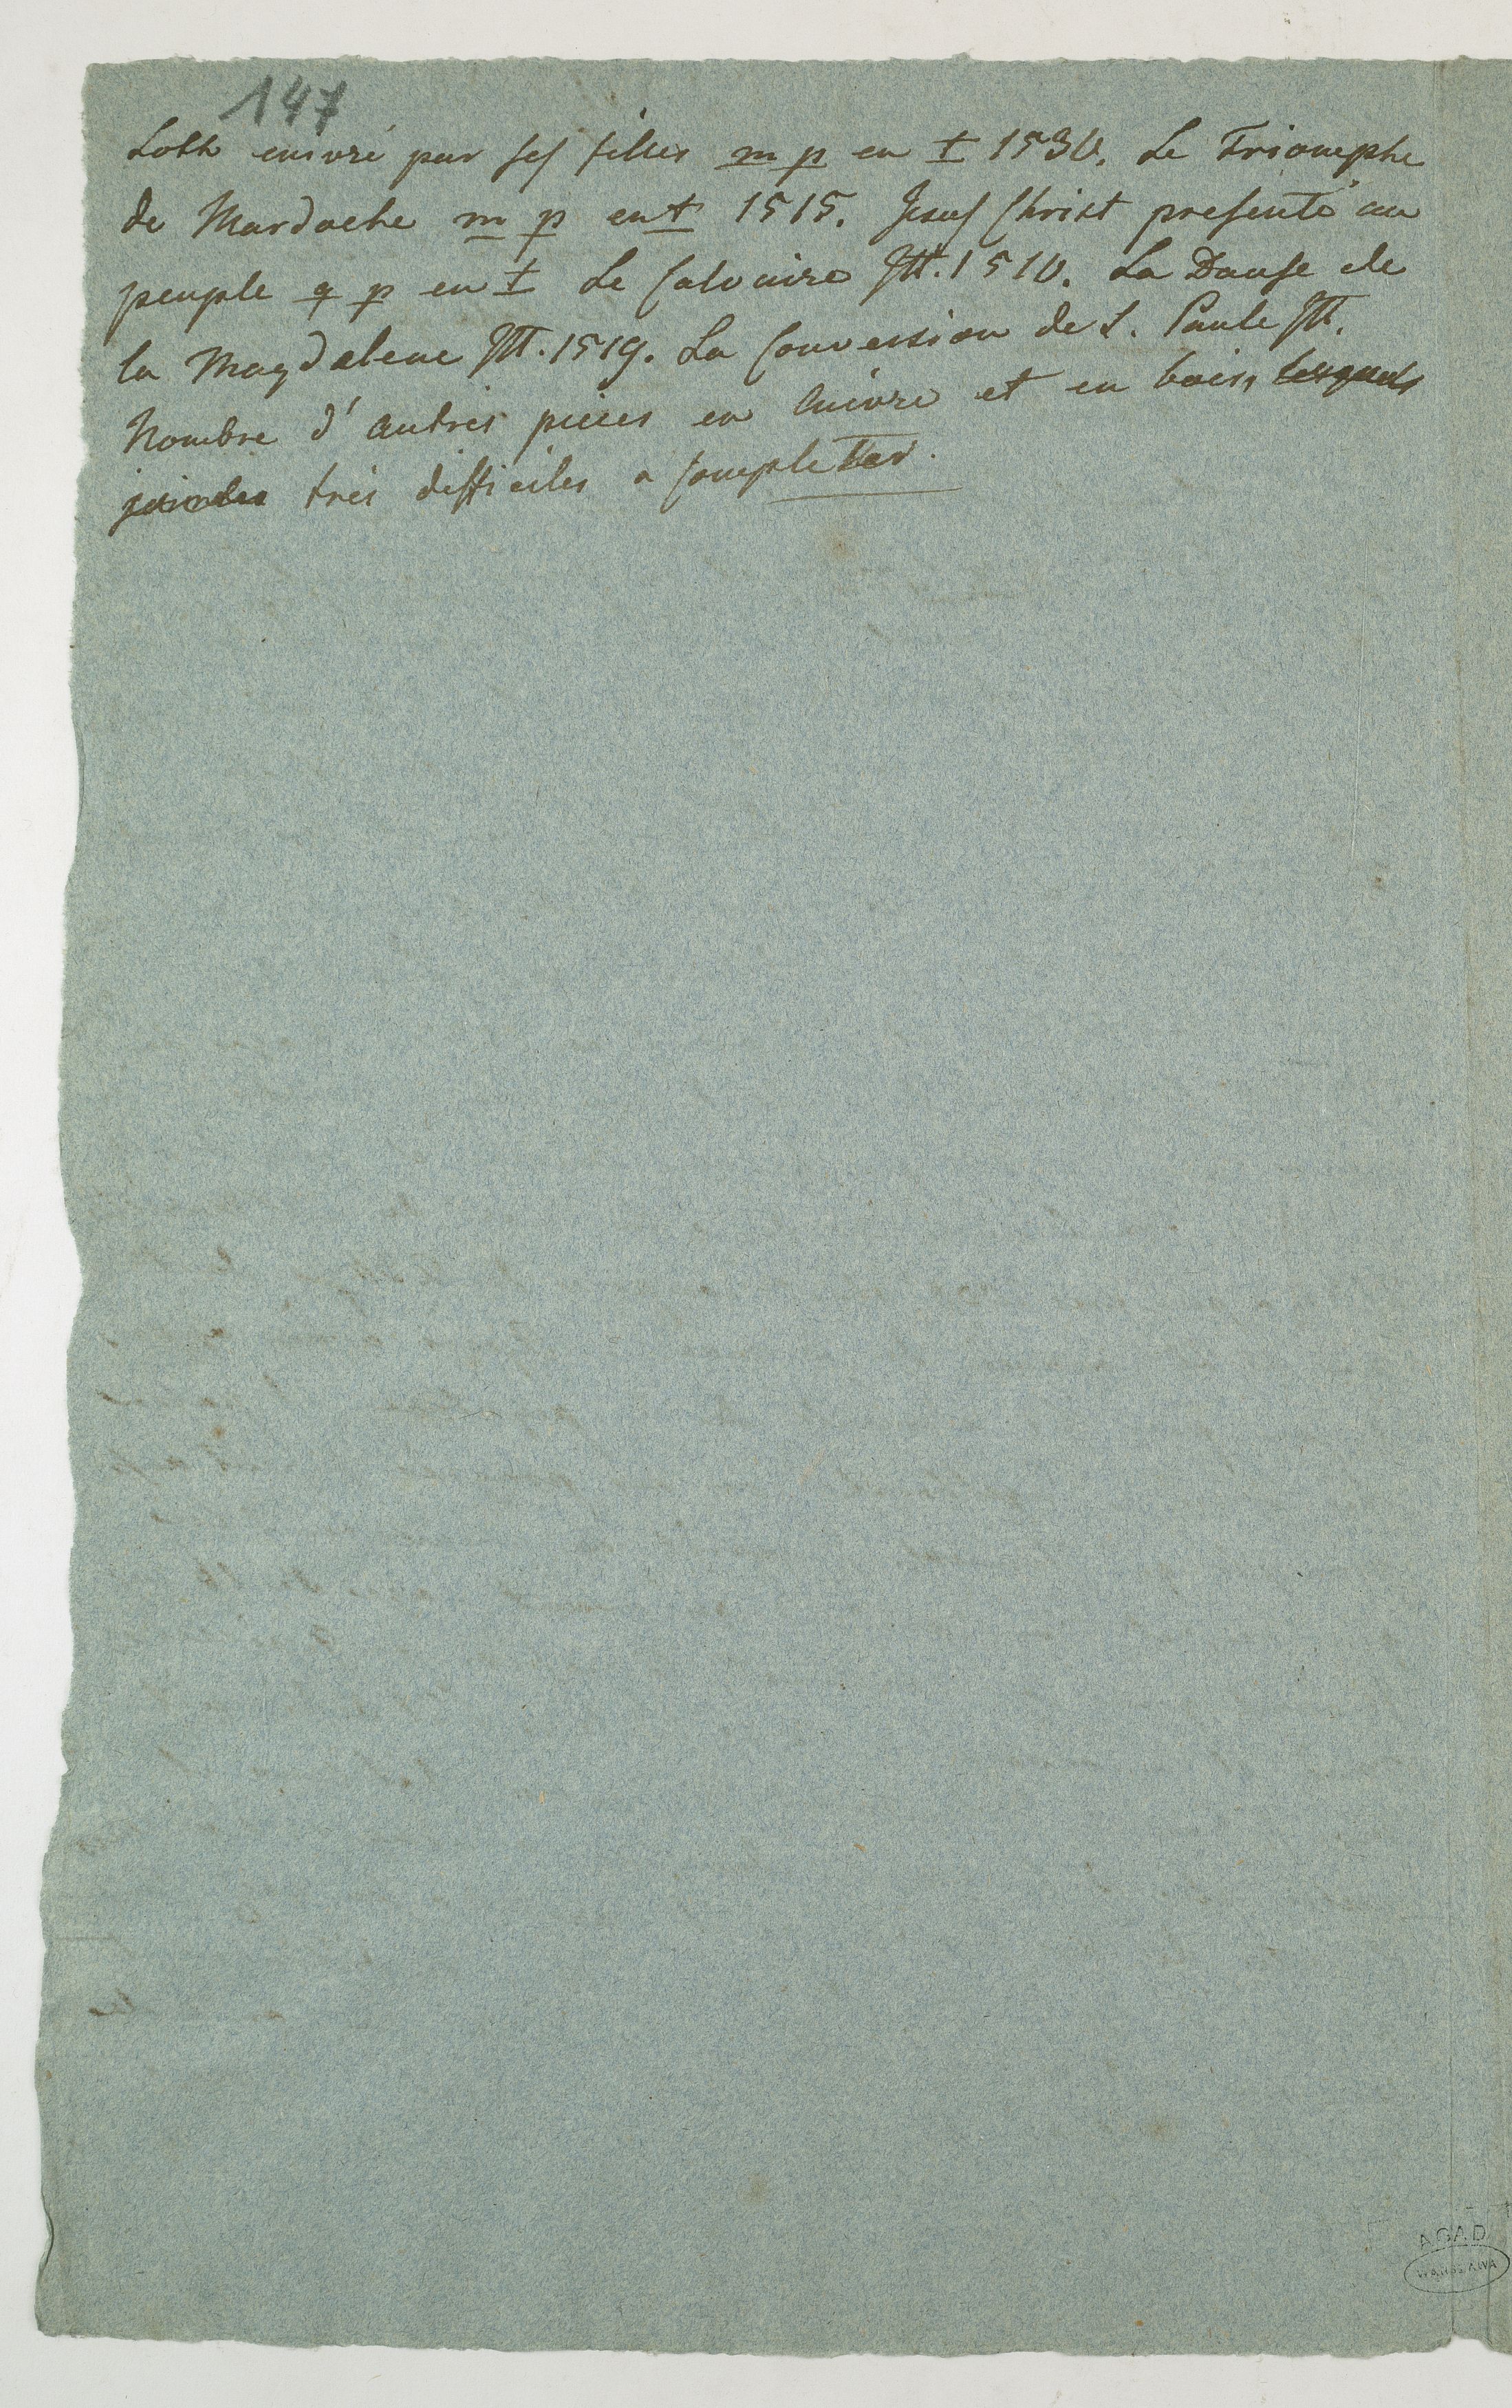 147
Loth enivré par ses filles m p en t 1530. Le Triomphe
de Mardoche m p en t 1515. Jesus Christ presenté au
peuple q p en t Le Calvaire Itt. 1510. La Danse de
la Magdalene Itt. 1519. La Conversion de S. Paule Itt.
Nombre d'autres pieces en Cuivre et en bois,
très difficiles a Completter.
AGAD
WARSZAWA